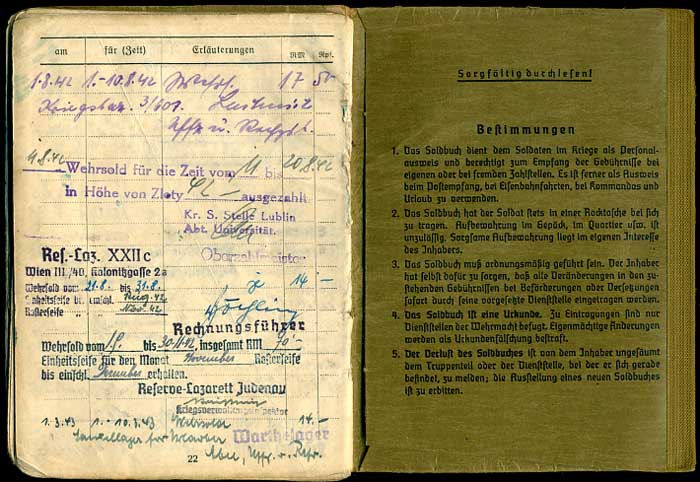 am für (Zeit) Erläuterungen RM Rpf.
1.8.42 1.-10.8.42 Wehrs. 17 50
Kriegslaz. 3/601
Uffz u.
11.8.42
Wehrsold für die Zeit vom 11 bis 20.8.42
in Höhe von Zloty 42 - ausgezahlt.
Kr. S. Stelle Lublin
Abt. Universität.
Oberzahlmeister
Res.-Laz. XXII c
Wien III/40, Kolonitzgasse 2a
Wehrsold vom 21.8. bis 31.8. 14 -
Einheitsseife bis einschl. Aug. 42
Rasierseife Nov. 42
Rechnungsführer
Wehrsold vom 1.9. bis 30.11.42, insgesamt RM 90.-
Einheitsseife für den Monat November Rasierseife
bis einschl. Dezember erhalten.
Reserve-Lazarett Judenau
Kriegsverwaltungsinspektor
1.3.43 1.-10.3.43 Wehrsold 14.-
Warthelager
22
Sorgfältig durchlesen!
Bestimmungen
1. Das Soldbuch dient dem Soldaten im Kriege als Personal-
ausweis und berechtigt zum Empfang der Gebührnisse bei
eigenen oder bei fremden Zahlstellen. Es ist ferner als Ausweis
beim Postempfang, bei Eisenbahnfahrten, bei Kommandos und
Urlaub zu verwenden.
2. Das Soldbuch hat der Soldat stets in einer Rocktasche bei sich
zu tragen. Aufbewahrung im Gepäck, im Quartier usw. ist
unzulässig. Sorgsame Aufbewahrung liegt im eigenen Interesse
des Inhabers.
3. Das Soldbuch muß ordnungsmäßig geführt sein. Der Inhaber
hat selbst dafür zu sorgen, daß alle Veränderungen in den zu-
stehenden Gebührnissen bei Beförderungen oder Versetzungen
sofort durch seine vorgesetzte Dienststelle eingetragen werden.
4. Das Soldbuch ist eine Urkunde. Zu Eintragungen sind nur
Dienststellen der Wehrmacht befugt. Eigenmächtige Änderungen
werden als Urkundenfälschung bestraft.
5. Der Verlust des Soldbuches ist von dem Inhaber ungesäumt
dem Truppenteil oder der Dienststelle, bei der er sich gerade
befindet, zu melden; die Ausstellung eines neuen Soldbuches
ist zu erbitten.